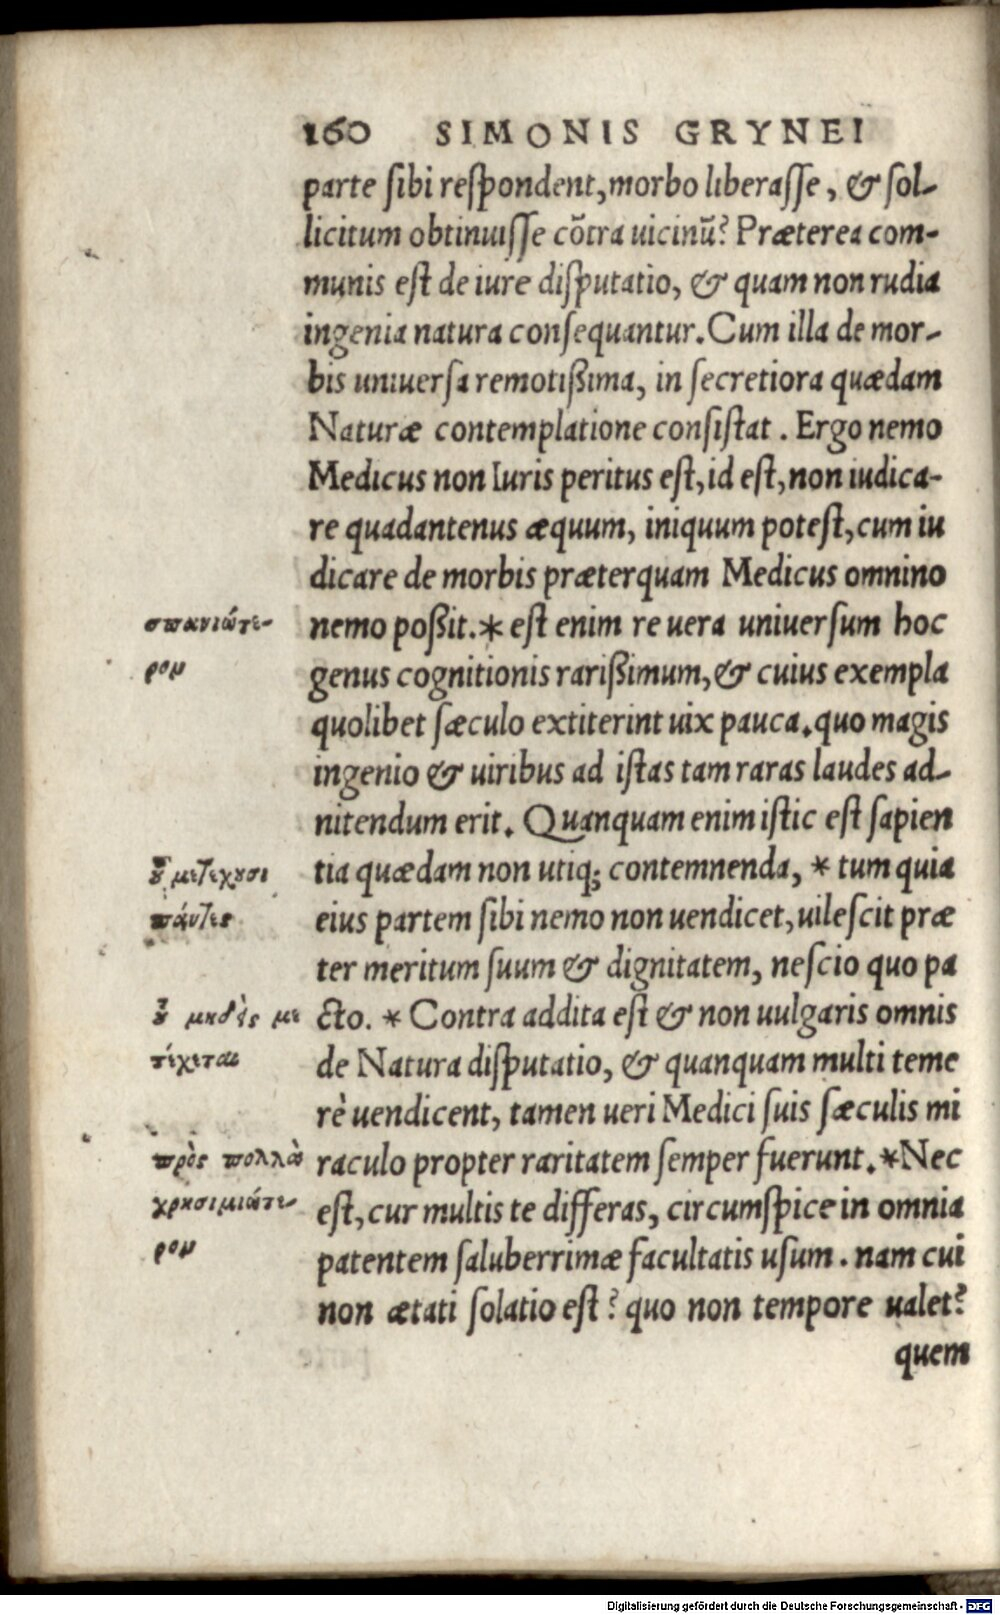 160 SIMONIS GRYNEI
parte sibi respondent, morbo liberasse, & sol-
licitum obtinuisse cōtra uicinū? Præterea com-
munis est de iure disputatio, & quam non rudia
ingenia natura consequantur. Cum illa de mor-
bis uniuersa remotißima, in secretiora quædam
Naturæ contemplatione consistat. Ergo nemo
Medicus non Iuris peritus est, id est, non iudica-
re quadantenus æquum, iniquum potest, cum iu
dicare de morbis præterquam Medicus omnino
σπανιώτε- nemo poßit.* est enim re uera uniuersum hoc
ρομ genus cognitionis rarißimum, & cuius exempla
quolibet sæculo extiterint uix pauca. quo magis
ingenio & uiribus ad istas tam raras laudes ad-
nitendum erit. Quanquam enim istic est sapien
οὗ μετέχουσι tia quædam non utiq; contemnenda, * tum quia
πάντες eius partem sibi nemo non uendicet, uilescit præ
ter meritum suum & dignitatem, nescio quo pa
οὗ μηδεὶς με cto. * Contra addita est & non uulgaris omnis
τέχεται de Natura disputatio, & quanquam multi teme
rè uendicent, tamen ueri Medici suis sæculis mi
πρὸς πολλὰ raculo propter raritatem semper fuerunt. *Nec
χρησιμιώτε- est, cur multis te differas, circumspice in omnia
ρομ patentem saluberrimæ facultatis usum. nam cui
non ætati solatio est? quo non tempore ualet?
quem
Digitalisierung gefördert durch die Deutsche Forschungsgemeinschaft - DFG